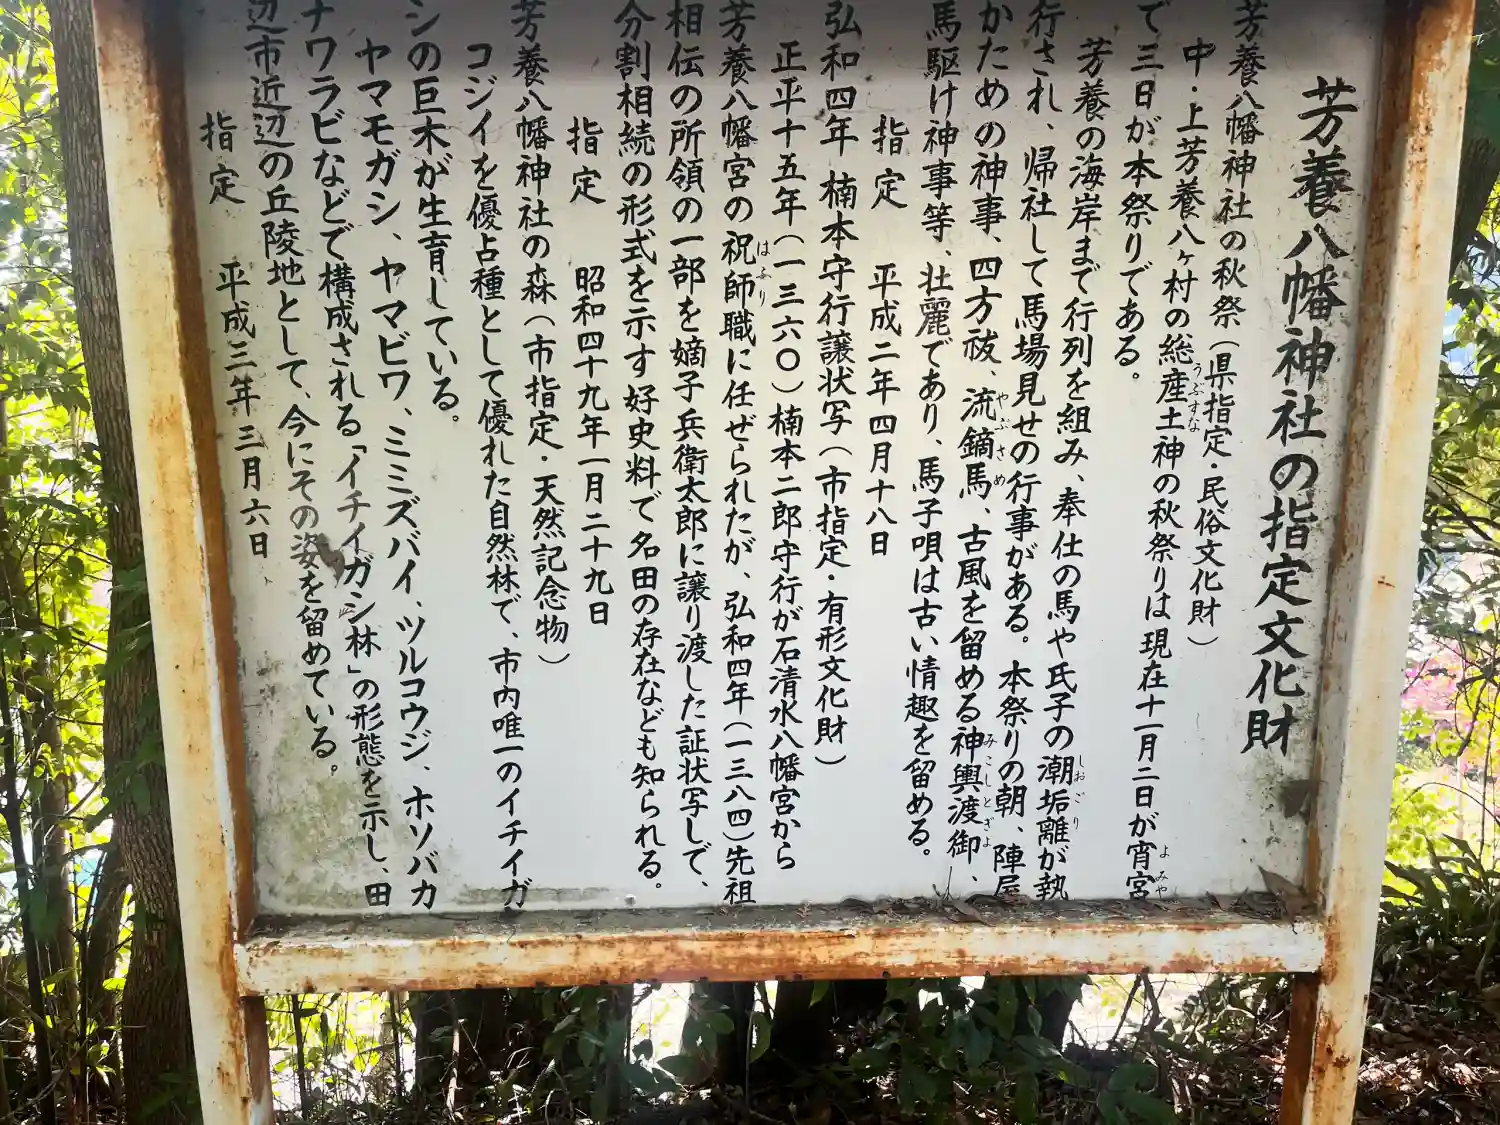 芳養八幡神社の指定文化財
芳養八幡神社の秋祭（県指定・民俗文化財）
中・上芳養八ヶ村の総産土神の秋祭りは現在十一月二日が宵宮
うぶすな
よみや
で三日が本祭りである。
芳養の海岸まで行列を組み、奉仕の馬や氏子の潮垢離が執
しおごり
行され、帰社して馬場見せの行事がある。本祭りの朝、陣屋
かための神事、四方祓、流鏑馬、古風を留める神輿渡御、
やぶさめ
みこしとぎよ
馬駆け神事等、壮麗であり、馬子唄は古い情趣を留める。
指定　平成二年四月十八日
弘和四年 楠本守行譲状写（市指定・有形文化財）
正平十五年（一三六〇）楠本二郎守行が石清水八幡宮から
芳養八幡宮の祝師職に任ぜられたが、弘和四年（一三八四）先祖
はふり
相伝の所領の一部を嫡子兵衛太郎に譲り渡した証状写しで、
分割相続の形式を示す好史料で名田の存在なども知られる。
指定　昭和四十九年一月二十九日
芳養八幡神社の森（市指定・天然記念物）
コジイを優占種として優れた自然林で、市内唯一のイチイガ
シの巨木が生育している。
ヤマモガシ、ヤマビワ、ミミズバイ、ツルコウジ、ホソバカ
ナワラビなどで構成される「イチイガシ林」の形態を示し、田
辺市近辺の丘陵地として、今にその姿を留めている。
指定　平成三年三月六日